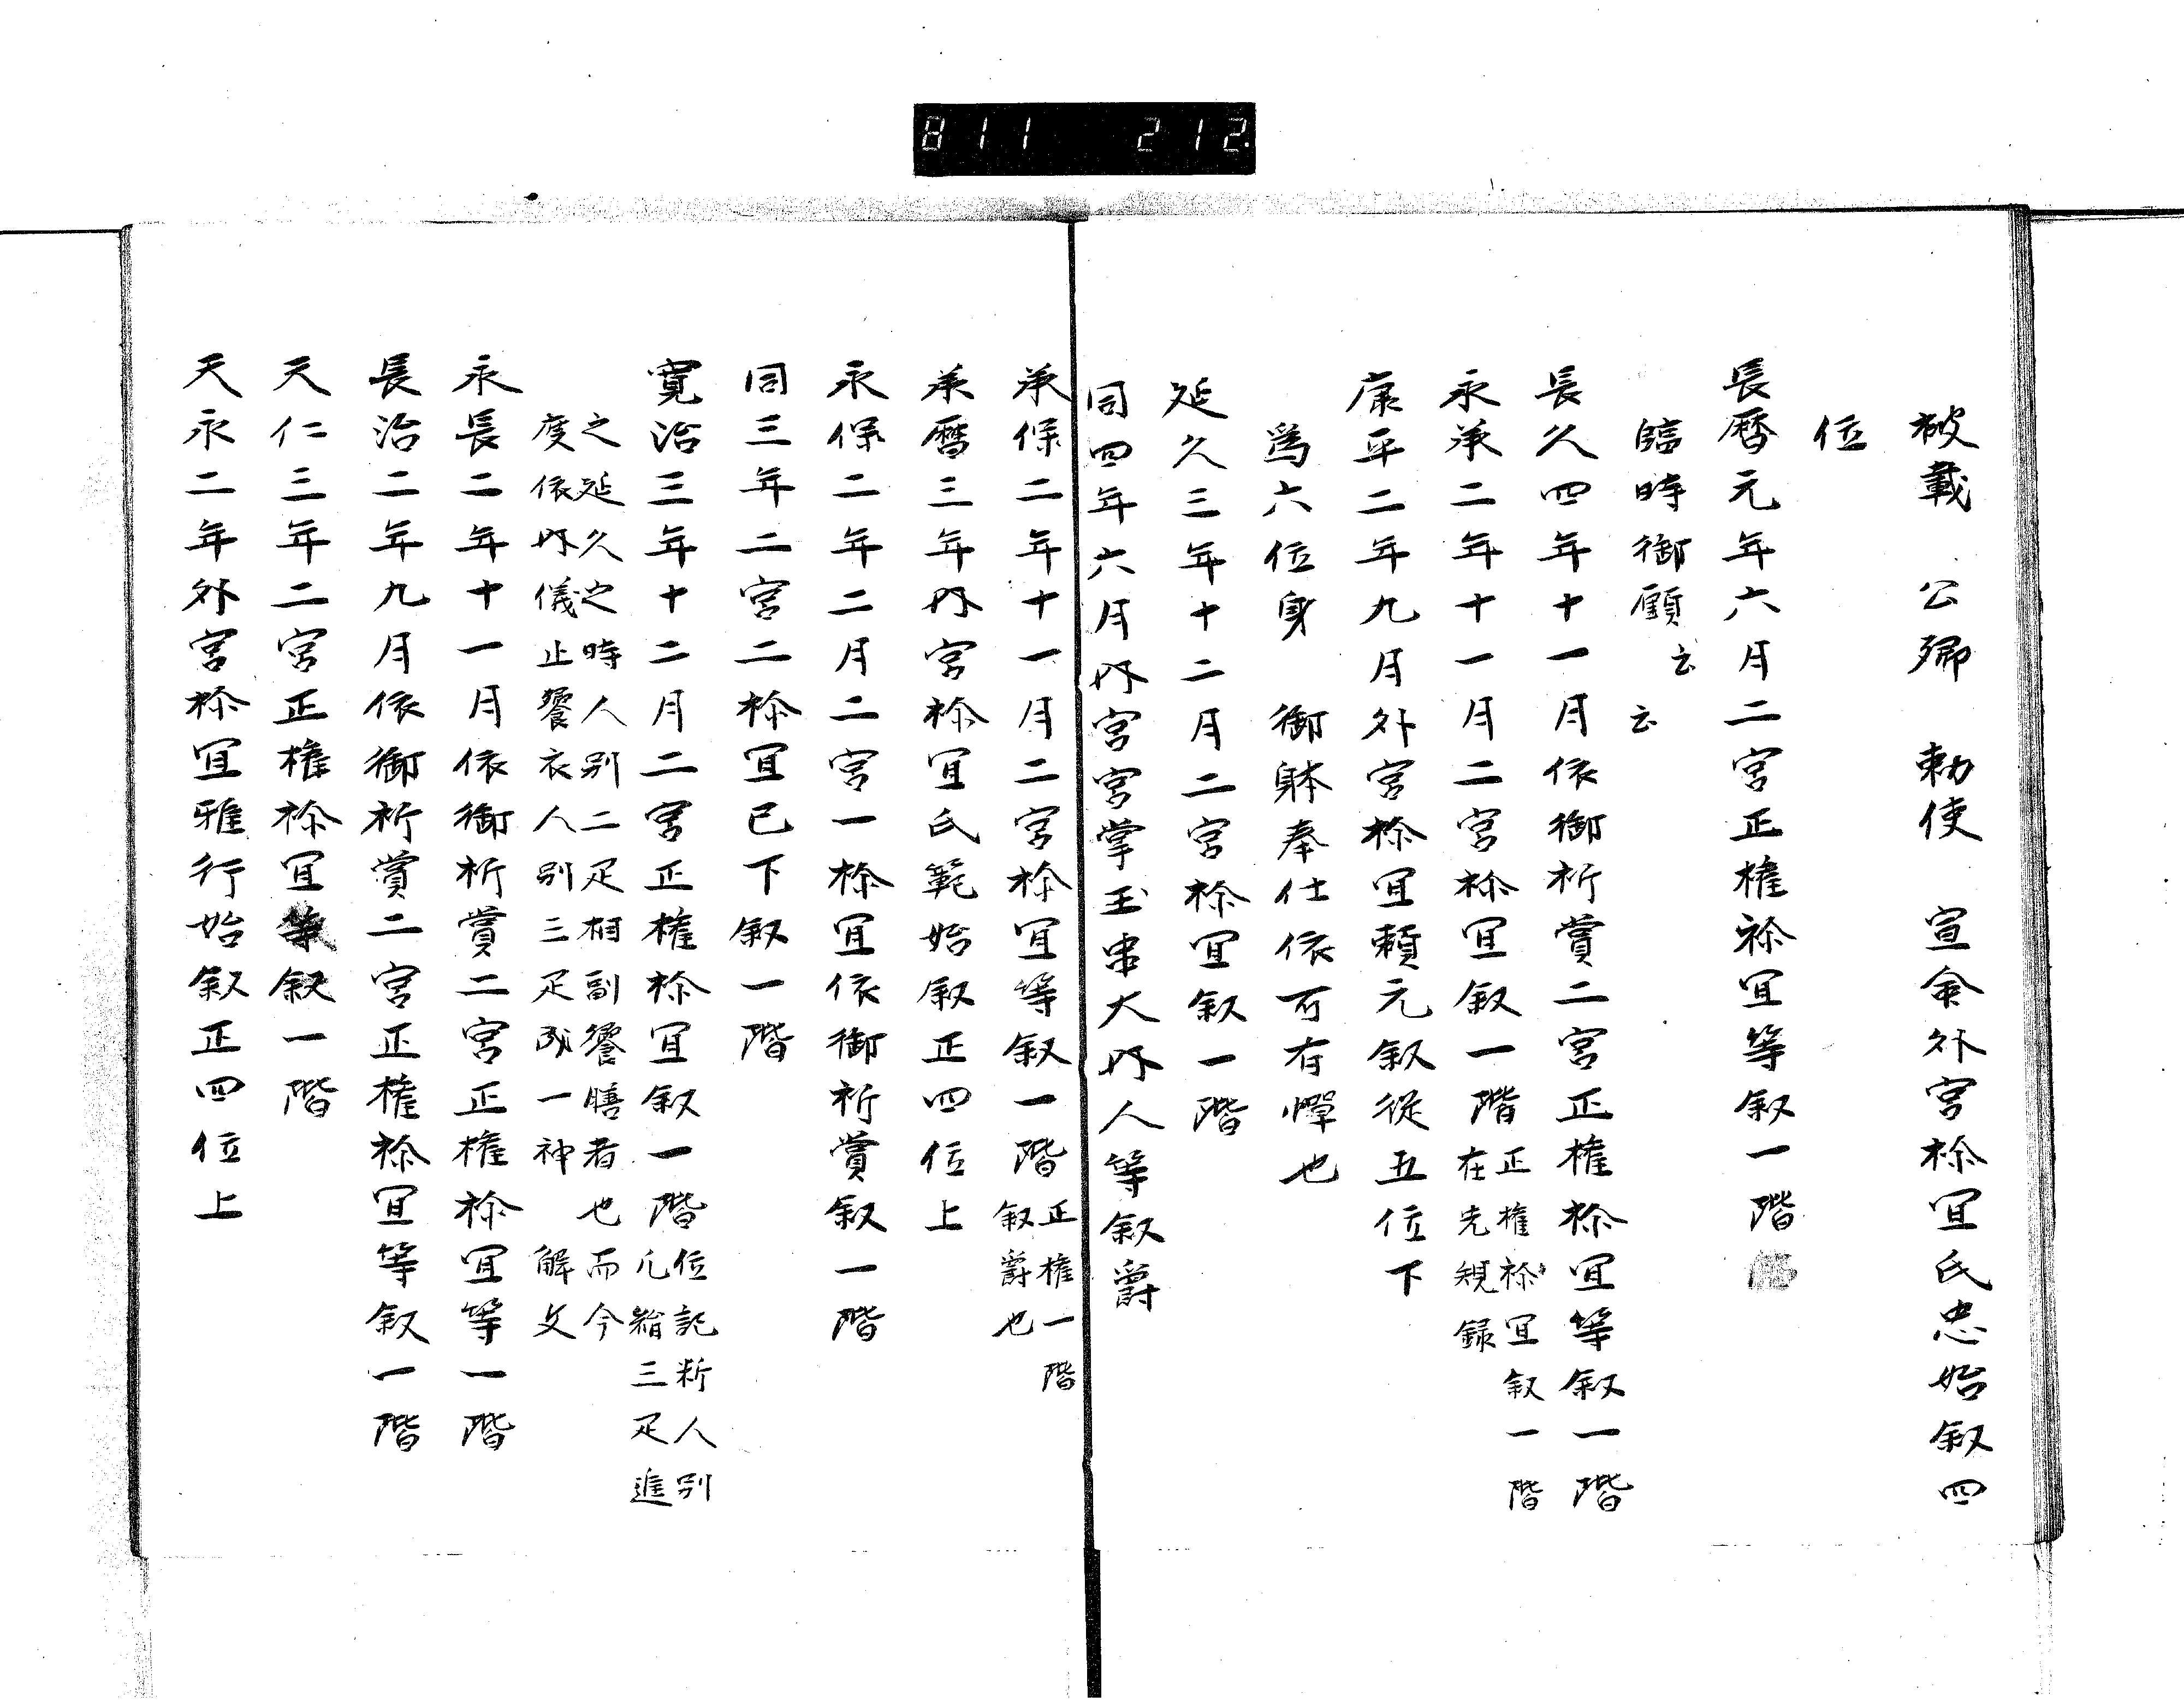 811 212.
被載 公卿 勅使 宣命外宮祢宜氏忠始叙四
位
長暦元年六月二宮正権祢宜等叙一階
臨時御願云云
長久四年十一月依御祈賞二宮正権祢宜等叙一階
永承二年十一月二宮祢宜叙一階正権祢宜叙一階
在先規録
康平二年九月外宮祢宜頼元叙従五位下
為六位身 御躰奉仕依可有憚也
延久三年十二月二宮祢宜叙一階
同四年六月外宮宮掌玉串大内人等叙爵
承保二年十一月二宮祢宜等叙一階正権一階
叙爵也
承暦三年外宮祢宜氏範始叙正四位上
永保二年二月二宮一祢宜依御祈賞叙一階
同三年二宮二祢宜已下叙一階
寛治三年十二月二宮正権祢宜叙一階位記料人別
凡絹三疋進
之延久之時人別二疋相副饗膳者也而今
度依外儀止饗衣人別三疋 一神 解文
永長二年十一月依御祈賞二宮正権祢宜等一階
長治二年九月依御祈賞二宮正権祢宜等叙一階
天仁三年二宮正権祢宜等叙一階
天永二年外宮祢宜雅行始叙正四位上